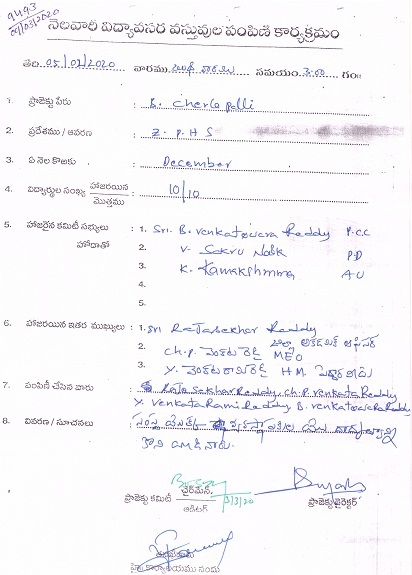 9493
09/03/2020
నెలవారీ విద్యావసర వస్తువుల పంపిణీ కార్యక్రమం
తేది. 05/02/2020 వారము బుధవారము సమయం. 3:00 గం॥
1. ప్రాజెక్టు పేరు : B. cherlopalli
2. ప్రదేశము / ఆవరణ : Z. P. H S
3. ఏ నెల కొఱకు : December
4. విద్యార్థుల సంఖ్య హాజరయిన / మొత్తము : 10/10
5. హాజరైన కమిటీ సభ్యులు : 1. Sri. B. venkateswara Reddy P.C.C
హోదాతో 2. V. Sakru Naik P.D
3. K. Kamakshmma AU
4.
5.
6. హాజరయిన ఇతర ముఖ్యులు : 1. Sri Rajasekhar Reddy
2. ch. p. వెంకట రెడ్డి MEO
3. Y. వెంకటరామిరెడ్డి H.M.
7. పంపిణీ చేసిన వారు : Raja Sekhar Reddy, ch. P. venkata Reddy
Y. venkata Rami Reddy, B. venkateswara Reddy
8. వివరణ / సూచనలు :
ప్రాజెక్టు కమిటీ చైర్‌మేన్. 3/3/20 ప్రాజెక్టు డైరెక్టర్
ఆడిటర్